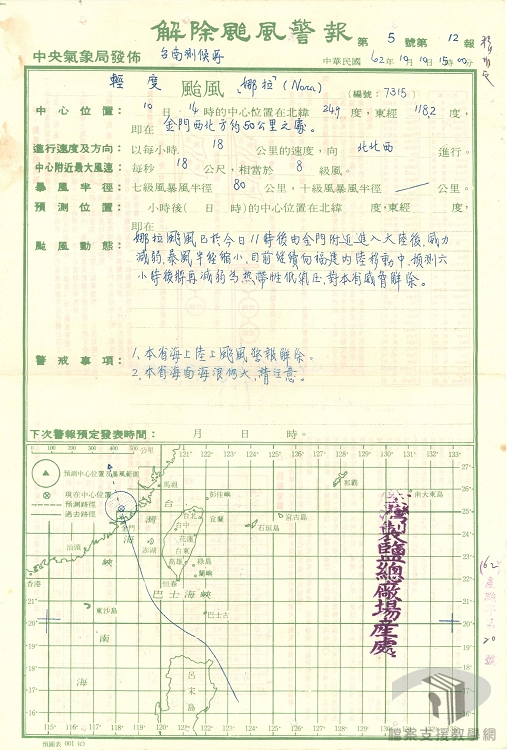 解除颱風警報 第 5 號第 12 報
中央氣象局發佈 台南測候所 中華民國 62年10月10日15時00分
輕度 颱風 「娜拉」(Nora) (編號：7315)
中心位置：10日14時的中心位置在北緯 24.9 度，東經 118.2 度，
即在 金門西北方約50公里之處。
進行速度及方向：以每小時 18 公里的速度，向 北北西 進行。
中心附近最大風速：每秒 18 公尺，相當於 8 級風。
暴風半徑：七級風暴風半徑 80 公里，十級風暴風半徑 — 公里。
預測位置：小時後（ 日 時）的中心位置在北緯 度，東經 度，
即在
颱風動態：娜拉颱風已於今日11時後由金門附近進入大陸後，威力
減弱，暴風半徑縮小，目前繼續向福建內陸移動中，預測六
小時後將再減弱為熱帶性低氣壓，對本省威脅解除。
警戒事項：1.本省海上陸上颱風警報解除。
2.本省海面海浪仍大，請注意。
下次警報預定發表時間： 月 日 時。
0 100 200 300 400 500 公里
121° 122° 123° 124° 125° 126° 127° 128° 129° 130° 131° 132° 133°
預測中心位置及暴風範圍
現在中心位置
預測路徑
過去路徑
馬祖
彭佳嶼
那霸
南大東島
台北
宜蘭
石垣島
宮古島
金門
台灣海峽
台中
花蓮
澎湖
台東
高雄
綠島
蘭嶼
恒春
汕頭
香港
巴士海峽
巴士古
東沙島
南海
呂宋島
26° 25° 24° 23° 22° 21° 20° 19° 18° 17° 16°
21° 20° 19° 18° 17° 16°
115° 116° 117° 118° 119° 120° 121° 122° 123° 124° 125° 126° 127° 128° 129° 130° 131° 132° 133°
預圖表 001 (C)
臺灣製鹽總廠場產處
檔案支援教學網